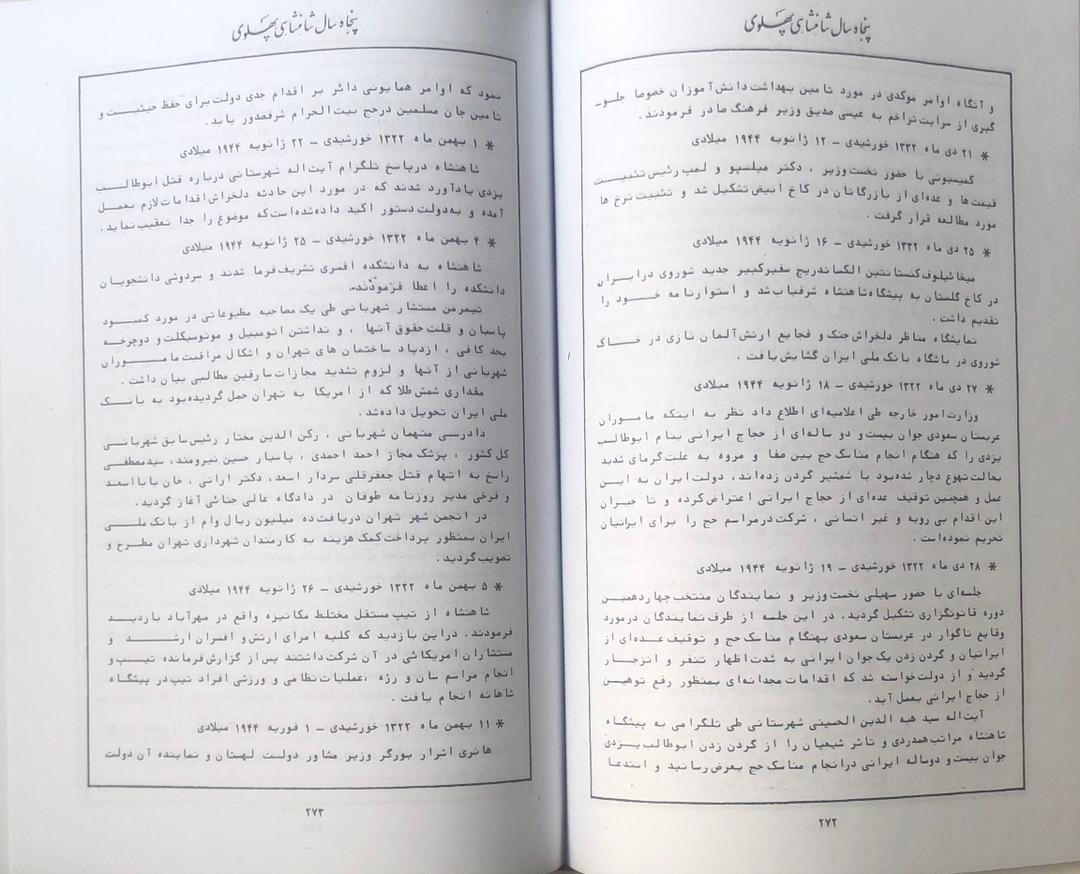 پنجاه سال شاهنشاهی پهلوی
و آنگاه اوامر موکدی در مورد تامین بهداشت دانش‌آموزان خصوصا جلو-
گیری از سرایت تراخم به عیسی صدیق وزیر فرهنگ صادر فرمودند.
* ۲۱ دی ماه ۱۳۳۲ خورشیدی – ۱۲ ژانویه ۱۹۴۴ میلادی
کمیسیونی با حضور نخست‌وزیر ، دکتر میلسپو و لمب رئیس تثبیت
قیمت‌ها و عده‌ای از بازرگانان در کاخ ابیض تشکیل شد و تثبیت نرخ ها
مورد مطالعه قرار گرفت .
* ۲۵ دی ماه ۱۳۳۲ خورشیدی – ۱۶ ژانویه ۱۹۴۴ میلادی
میخائیلوف کنستانتین الکساندریچ سفیرکبیر جدید شوروی در ایران
در کاخ گلستان به پیشگاه شاهنشاه شرفیاب شد و استوارنامه خود را
تقدیم داشت .
نمایشگاه مناظر دلخراش جنگ و فجایع ارتش آلمان نازی در خاک
شوروی در باشگاه بانک ملی ایران گشایش یافت .
* ۲۷ دی ماه ۱۳۲۲ خورشیدی – ۱۸ ژانویه ۱۹۴۴ میلادی
وزارت امور خارجه طی اعلامیه‌ای اطلاع داد نظر به اینکه ماموران
عربستان سعودی جوان بیست و دو ساله‌ای از حجاج ایرانی بنام ابوطالب
یزدی را که هنگام انجام مناسک حج بین صفا و مروه به علت گرمای شدید
بحالت تهوع دچار شده‌بود با شمشیر گردن زده‌اند، دولت ایران به این
عمل و همچنین توقیف عده‌ای از حجاج ایرانی اعتراض کرده و تا جبران
این اقدام بی رویه و غیر انسانی ، شرکت در مراسم حج را برای ایرانیان
تحریم نموده‌است .
* ۲۸ دی ماه ۱۳۲۲ خورشیدی – ۱۹ ژانویه ۱۹۴۴ میلادی
جلسه‌ای با حضور سهیلی نخست‌وزیر و نمایندگان منتخب چهاردهمین
دوره قانونگزاری تشکیل گردید. در این جلسه از طرف نمایندگان در مورد
وقایع ناگوار در عربستان سعودی بهنگام مناسک حج و توقیف عده‌ای از
ایرانیان و گردن زدن یک جوان ایرانی به شدت اظهار تنفر و انزجار
گردید و از دولت خواسته شد که اقدامات مجدانه‌ای بمنظور رفع توهین
از حجاج ایرانی بعمل آید.
آیت‌اله سید هبه الدین الحسینی شهرستانی طی تلگرامی به پیشگاه
شاهنشاه مراتب همدردی و تاثر شیعیان را از گردن زدن ابوطالب یزدی
جوان بیست و دوساله ایرانی در انجام مناسک حج بعرض رسانید و استدعا
۲۷۲
پنجاه سال شاهنشاهی پهلوی
نمود که اوامر همایونی دائر بر اقدام جدی دولت برای حفظ حیثیت و
تامین جان مسلمین در حج بیت الحرام شرفصدور یابد.
* ۱ بهمن ماه ۱۳۲۲ خورشیدی – ۲۲ ژانویه ۱۹۴۴ میلادی
شاهنشاه در پاسخ تلگرام آیت‌اله شهرستانی درباره قتل ابوطالب
یزدی یادآورد شدند که در مورد این حادثه دلخراش اقدامات لازم بعمل
آمده و به‌دولت دستور اکید داده شده‌است که موضوع را جدا تعقیب نماید.
* ۴ بهمن ماه ۱۳۲۲ خورشیدی – ۲۵ ژانویه ۱۹۴۴ میلادی
شاهنشاه به دانشکده افسری تشریف‌فرما شدند و سردوشی دانشجویان
دانشکده را اعطا فرمودند.
تیمرمن مستشار شهربانی طی یک مصاحبه مطبوعاتی در مورد کمبود
پاسبان و قلت حقوق آنها ، و نداشتن اتومبیل و موتوسیکلت و دوچرخه
بحد کافی ، ازدیاد ساختمان های تهران و اشکال مراقبت ماموران
شهربانی از آنها و لزوم تشدید مجازات سارقین مطالبی بیان داشت .
مقداری شمش طلا که از امریکا به تهران حمل گردیده‌بود به بانک
ملی ایران تحویل داده‌شد .
دادرسی متهمان شهربانی ، رکن الدین مختار رئیس سابق شهربانی
کل کشور ، پزشک مجاز احمد احمدی ، پاسیار حسین نیرومند، سید مصطفی
راسخ به اتهام قتل جعفرقلی سردار اسعد، دکتر ارانی ، خان بابا اسعد
و فرخی مدیر روزنامه طوفان در دادگاه عالی جنائی آغاز گردید.
در انجمن شهر تهران دریافت ده میلیون ریال وام از بانک ملی
ایران بمنظور پرداخت کمک هزینه به کارمندان شهرداری تهران مطرح و
تصویب گردید .
* ۵ بهمن ماه ۱۳۲۲ خورشیدی – ۲۶ ژانویه ۱۹۴۴ میلادی
شاهنشاه از تیپ مستقل مختلط مکانیزه واقع در مهرآباد بازدید
فرمودند. دراین بازدید که کلیه امرای ارتش و افسران ارشد و
مستشاران امریکائی در آن شرکت داشتند پس از گزارش فرمانده تیپ و
انجام مراسم سان و رژه ، عملیات نظامی و ورزشی افراد تیپ در پیشگاه
شاهانه انجام یافت .
* ۱۱ بهمن ماه ۱۳۲۲ خورشیدی – ۱ فوریه ۱۹۴۴ میلادی
هانری اشرار بورگر وزیر مشاور دولت لهستان و نماینده آن دولت
۲۷۳